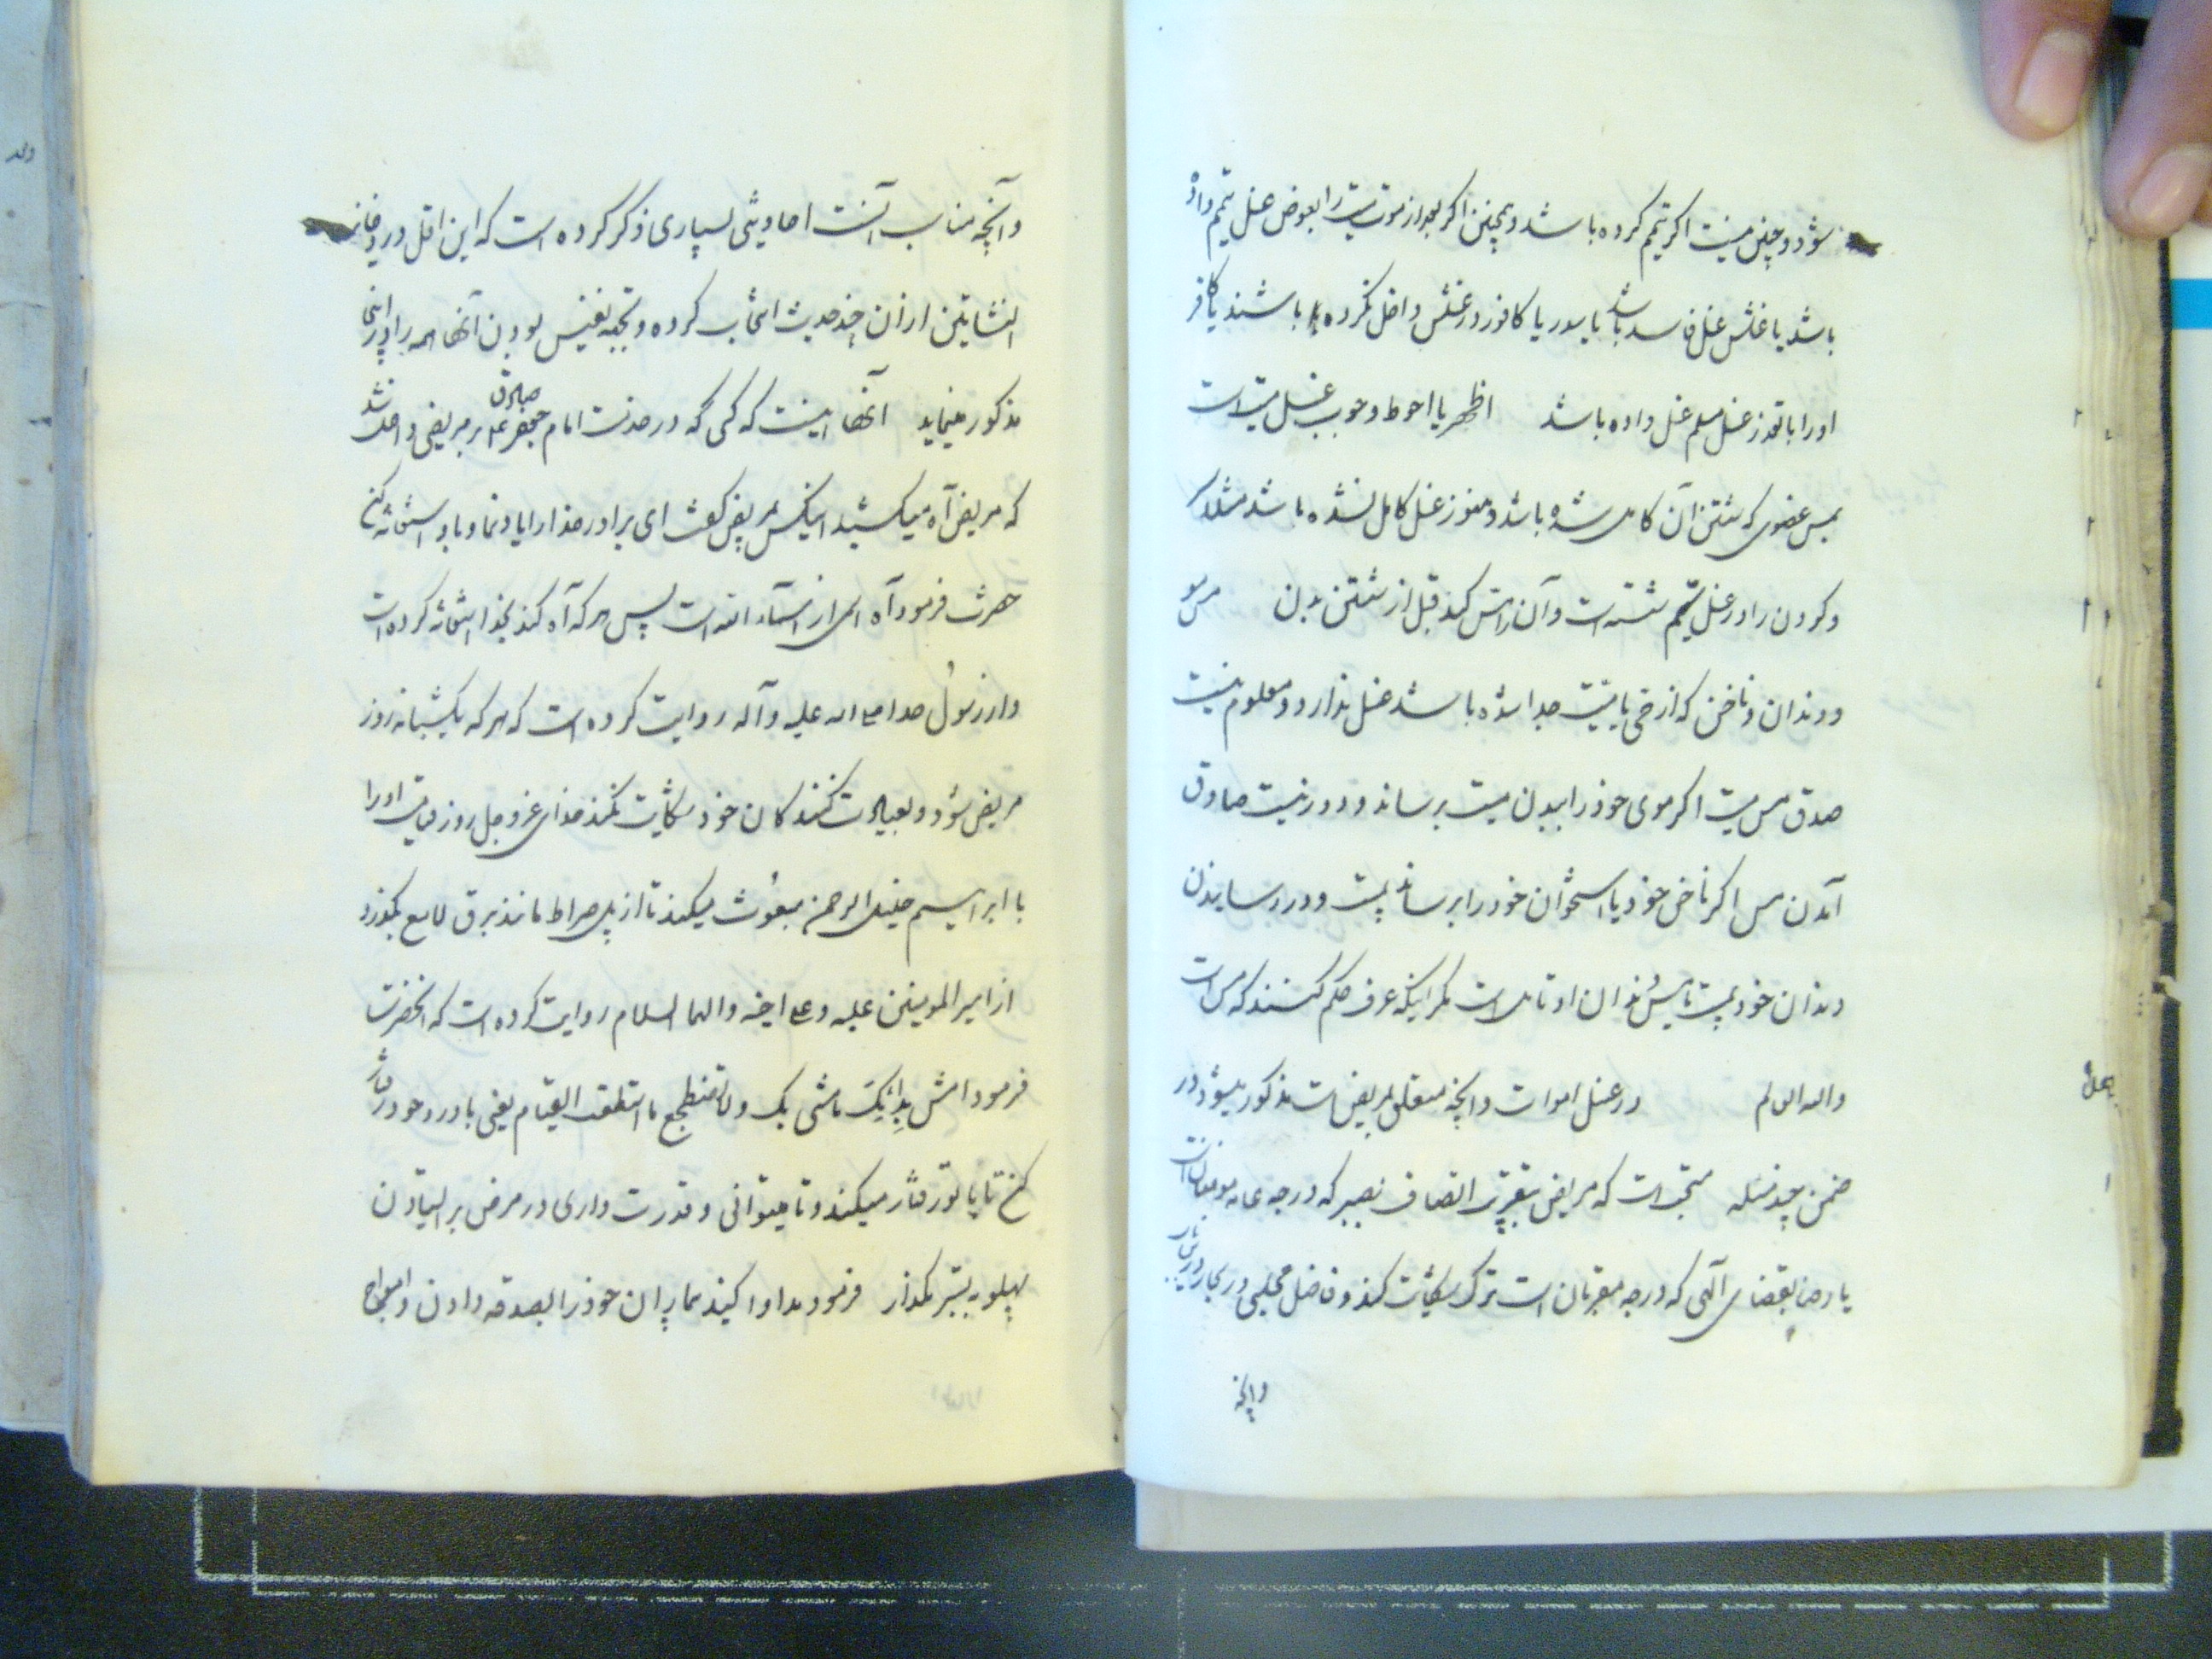 شود و چنین نیست اگر تیمم کرده باشد و همچنین اگر بعد از موت میت را بعوض غسل تیمم داده
باشد یا غسلش غسل فاسد باشد یا سدر یا کافور در غسلش داخل نکرده باشند یا کافر
او را با تعذر غسل مسلم غسل داده باشد اظهر یا احوط وجوب غسل میت است
بمس عضوی که شستن آن کامل شده باشد و هنوز غسل کامل نشده باشد مثلا
و کردن را در غسل شسته است و آن را مس کند قبل از شستن بدن مس مو
و دندان و ناخن که از حی یا میت جدا شده باشد غسل ندارد و معلوم نیست
صدق مس میت اگر موی خود را ببدن میت برساند و دور نیست صادق
آمدن مس اگر ناخن خود یا استخوان خود را برساند بمیت و در رسانیدن
دندان خود بمیت یا مس دندان او تامل است مگر اینکه عرف حکم کنند که مس است
والله العالم در غسل اموات و آنچه متعلق بمریض است مذکور میشود در
ضمن چند مسئله مستحب است که مریض بقدر اتصاف بصبر که درجه عامه مومنان است
یا رضا بقضای آلهی که درجه مقربان است ترک شکایت کند و فاضل مجلسی در بحار در این باب
وآنچه
وآنچه مناسب آنست احادیثی بسیاری ذکر کرده است که این اقل در وظائف
النشاتین از آن چند حدیث انتخاب کرده و بجهه نفیس بودن آنها همه را در اینجا
مذکور مینماید آنها اینست که کسی که در خدمت امام جعفر صادق ع بر مریضی داخل شد
که مریض آه میکشید اینکس بمریض گفت ای برادر خدا را یاد نما و باو استغاثه کن
حضرت فرمود آه اسمی از اسماء الله است پس هر که آه کند بخدا استغاثه کرده است
و از رسول خدا صلی الله علیه و آله روایت کرده است که هر که یکشبانه روز
مریض شود و بعیادت کنندکان خود شکایت نکند خدای عز و جل روز قیامت او را
با ابراهیم خلیل الرحمن مبعوث میکند تا از پل صراط مانند برق لامع بگذرد
از امیر المومنین علیه و علی اخیه و الهما السلام روایت کرده است که آنحضرت
فرمود امش بدائک ما مشی بک و لا تضطجع ما استطعت القیام یعنی با درد خود رفتار
کن تا با تو رفتار میکند و تا میتوانی و قدرت داری در مرض بر ایستادن
پهلو به بستر مگذار فرمود مداوا کنید بیماران خود را بصدقه دادن و امواج